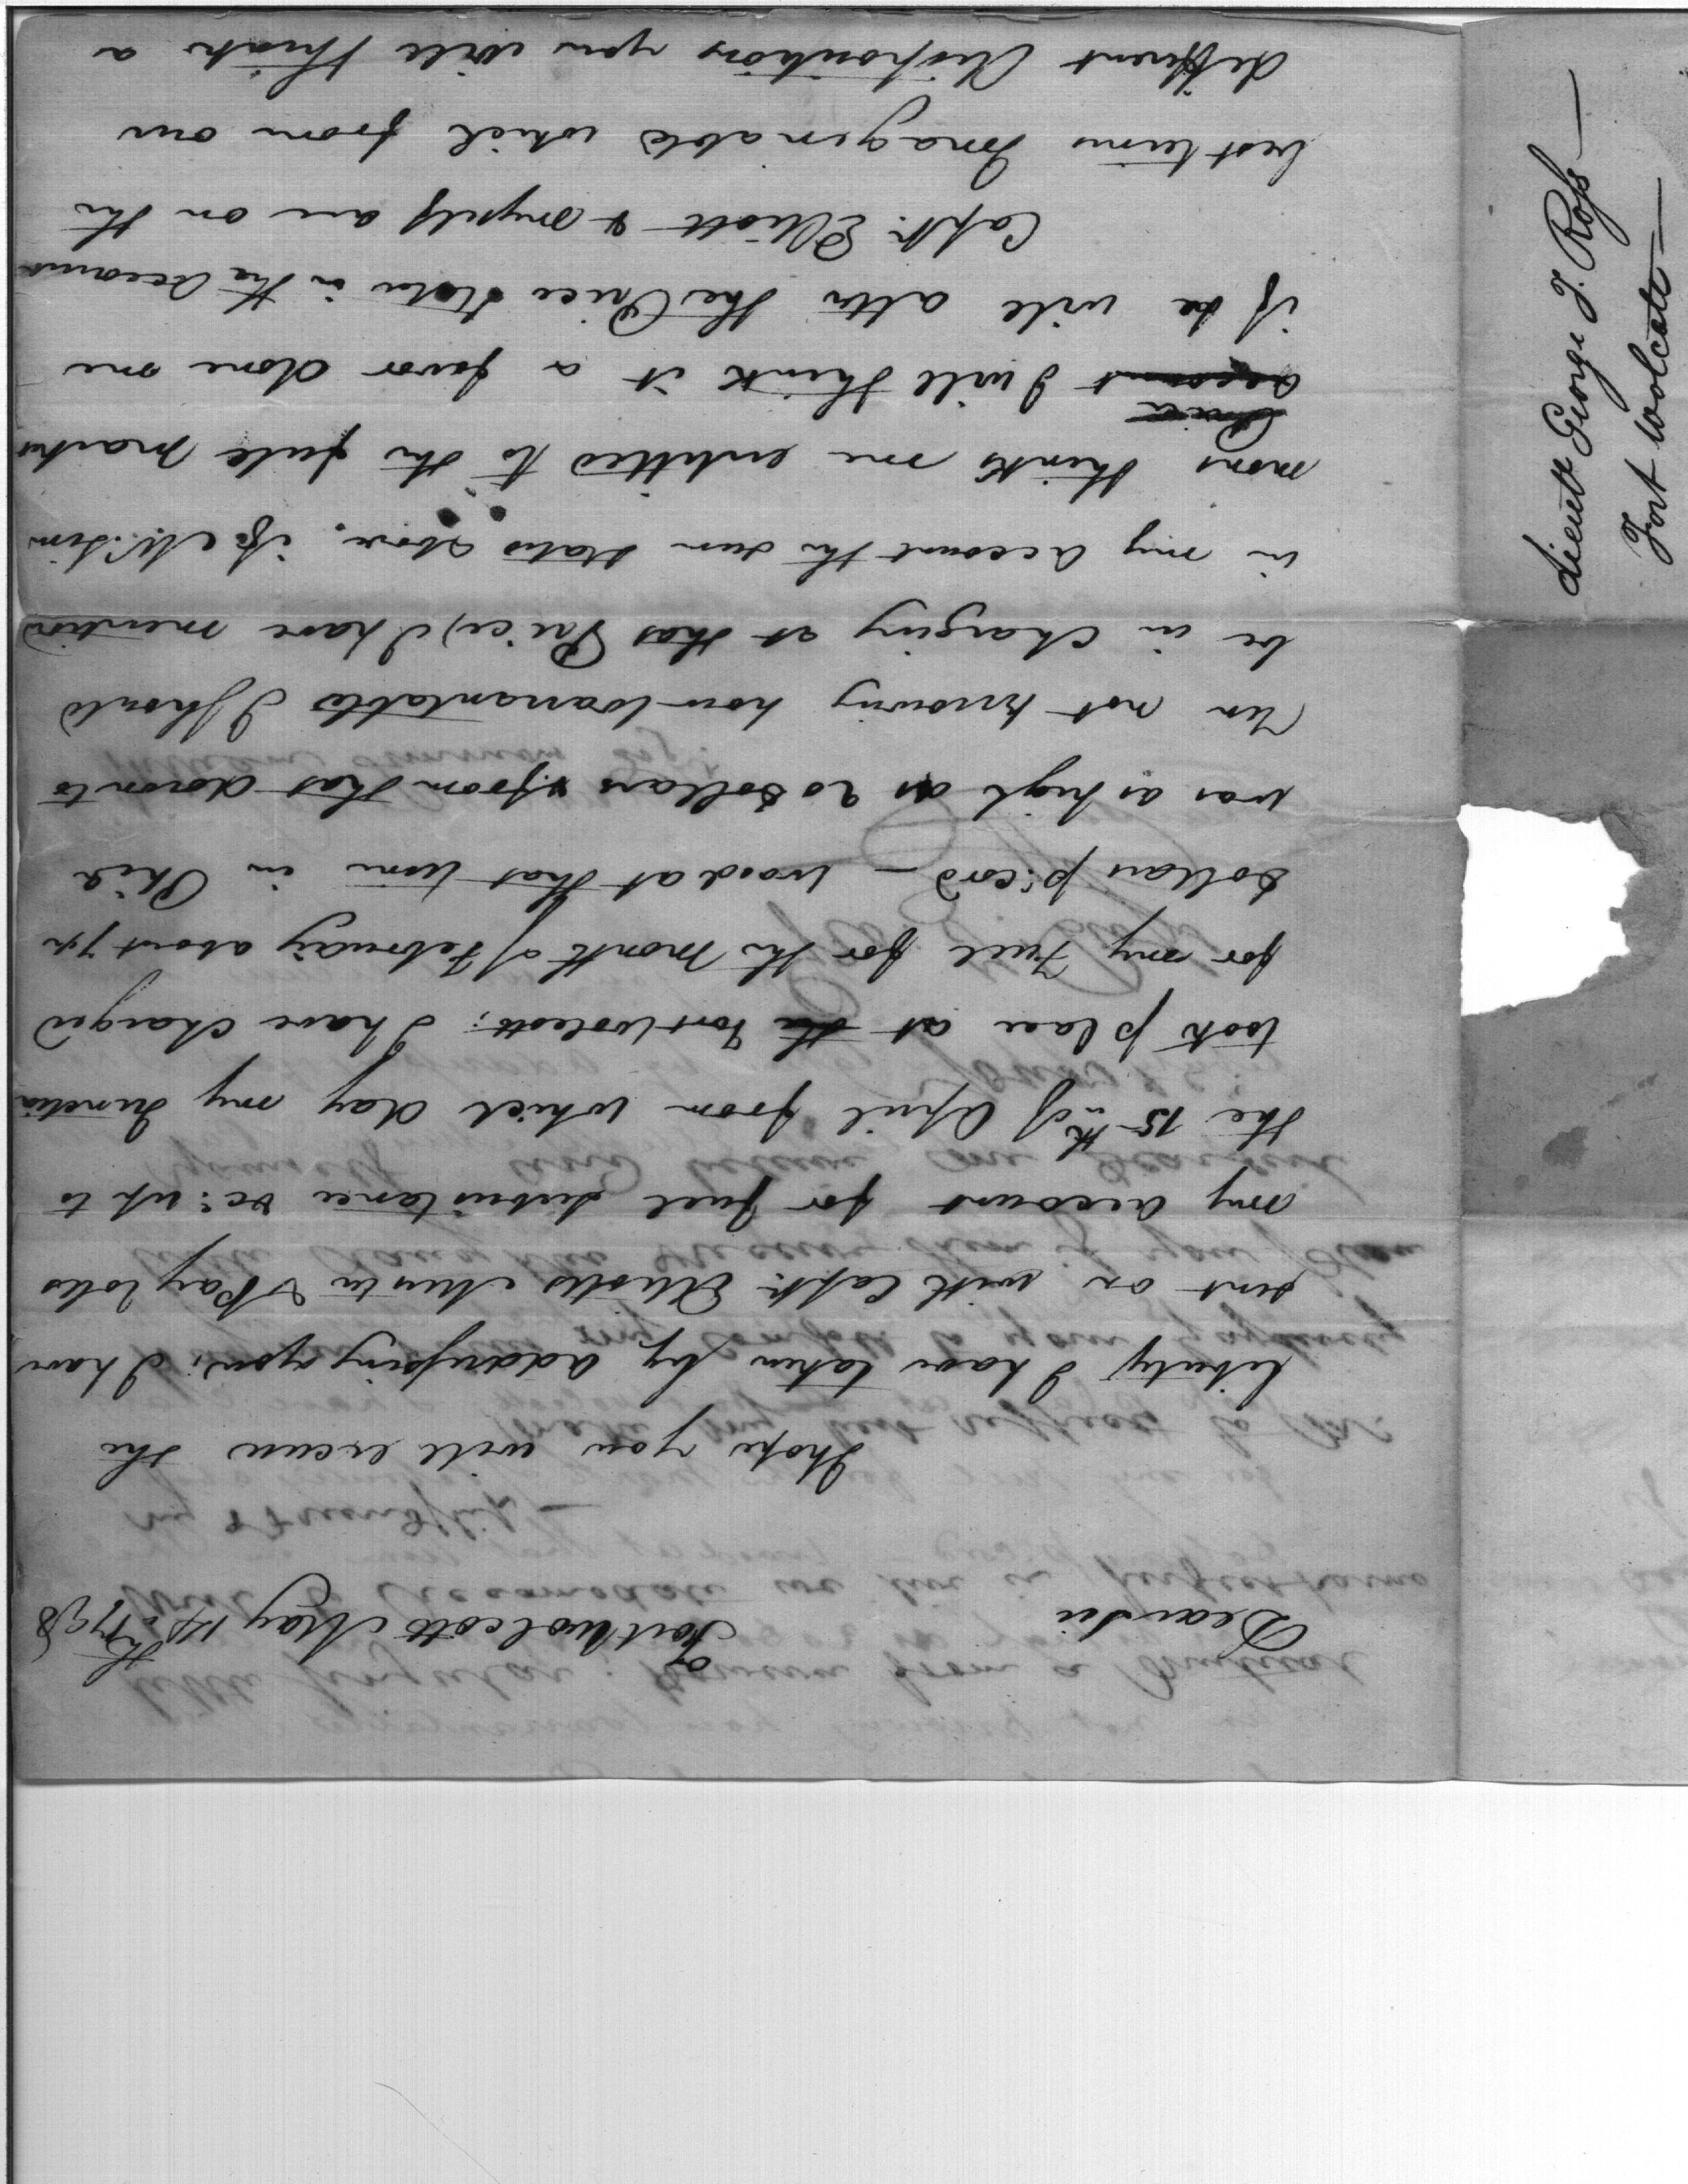 Fort Wolcott May 14th 1798
Dear Sir
I hope you will excuse the
liberty I have taken by addressing you; I have
sent on with Capt. Elliotts Muster & Pay roles
my account for fuel subsistance &c: up to
the 15th of April from which day my
took place at the Fort Wolcott; I have charged
for my Fuel for the Month of February about
Dollars pr Cord – wood at that time in Phila
was as high as 20 Dollars & from that down to
not knowing how warrantable I should
be in charging at that Price) I have mentioned
in my account the sum stated above, if Mr. Sim
mons thinks me entitled to the full market
Price
account I will think it a favor done me
if he will alter the Price stated in the account
Capt. Elliott & myself are on the
best terms Imaginable which from our
different Dispositions you will think a
Lieutt George J. Ross—
Fort Wolcott—